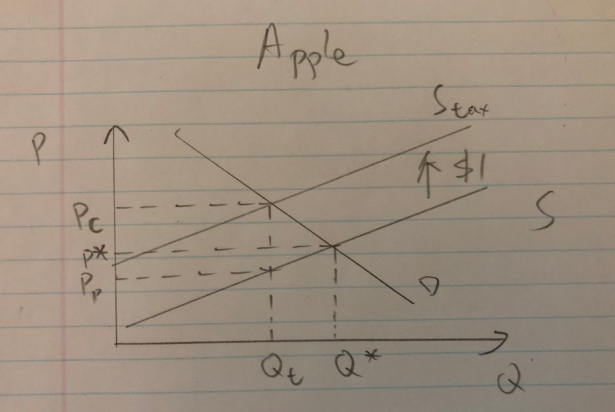 Apple
P
Stax
↑ $1
S
Pc
P*
Pp
D
Qt
Q*
Q